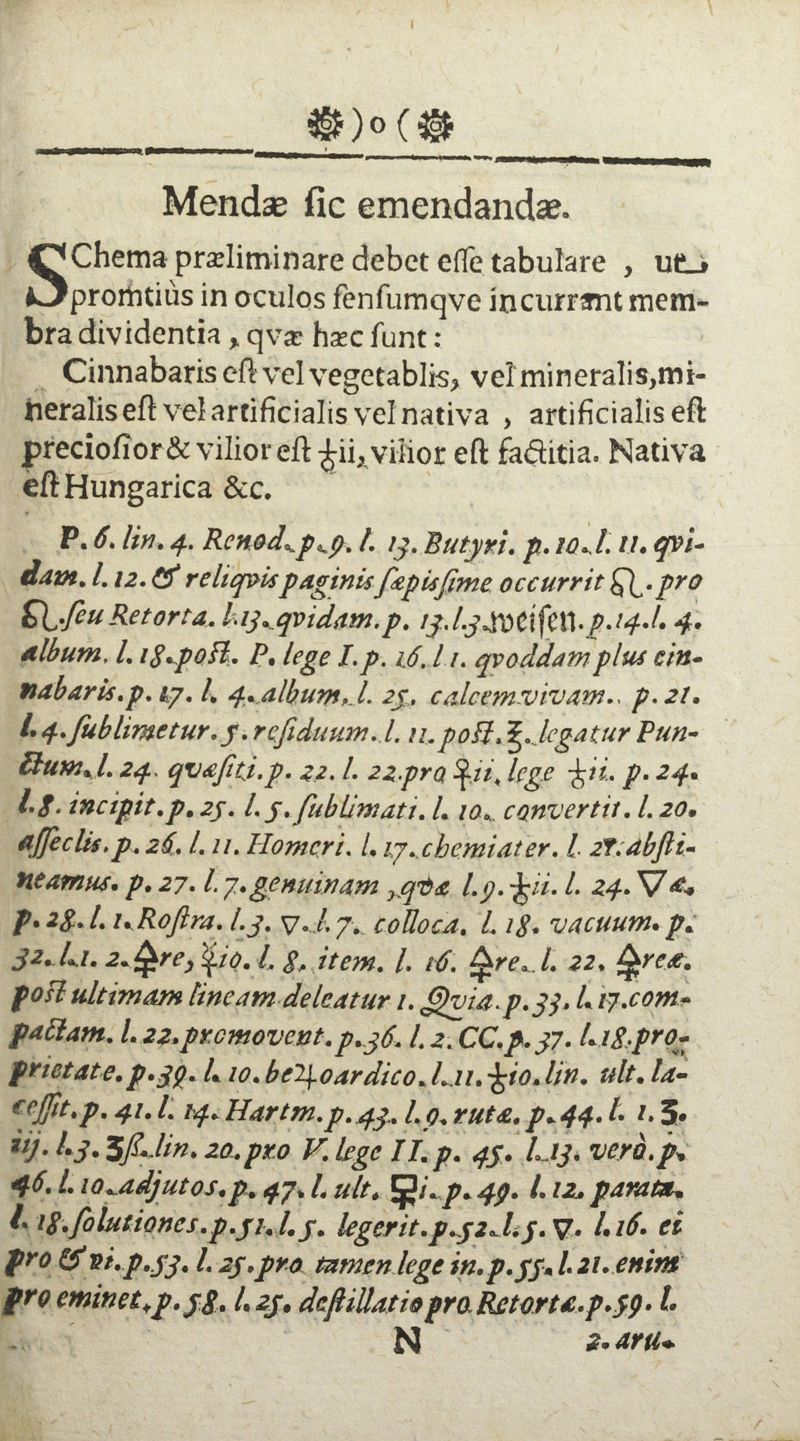 )o(
Mendæ ſic emendandæ.
SChema præliminare debet eſſe tabulare , ut
promtiùs in oculos ſenſumqve incurrant mem-
bra dividentia, qvæ hæc ſunt:
Cinnabaris eſt vel vegetablis, vel mineralis,mi-
neralis eſt vel artificialis vel nativa , artificialis eſt
precioſior & vilior eſt ♁ii, vilior eſt factitia. Nativa
eſt Hungarica &c.
P. 6. lin. 4. Renod. p. 9. l. 13. Butyri. p. 10. l. 11. qvi-
dam. l. 12. & reliqvis paginis ſæpiſſime occurrit . pro
ſeu Retorta. l. 13. qvidam. p. 13. l. 3 weiſen. p. 14. l. 4.
album. l. 18. poſt. P. lege I. p. 16. l 1. qvoddam plus cin-
nabaris. p. 17. l. 4. album, l. 25. calcem vivam. p. 21.
l. 4. ſublimetur. 5. reſiduum. l. 11. poſt. legatur Pun-
ctum. l. 24. qvæſiti. p. 22. l. 22. pro ii, lege ♁ii. p. 24.
l. 8. incipit. p. 25. l. 5. ſublimati. l. 10. convertit. l. 20.
aſſeclis. p. 26. l. 11. Homeri. l. 17. chemiater. l. 21. abſti-
neamus. p. 27. l. 7. genuinam , qvæ l. 9. ♁ii. l. 24. ▽æ.
p. 28. l. 1. Roſtra. l. 3. ▽. l. 7. colloca. l. 18. vacuum. p.
32. l. 1. 2. re, io. l. 8. item. l. 16. re. l. 22. reæ.
poſt ultimam lineam deleatur 1. Qvia. p. 33. l. 17. com-
pactam. l. 22. promovent. p. 36. l. 2. CC. p. 37. l. 18. pro-
prietate. p. 39. l. 10. be♃oardico. l. 11. ♁io. lin. ult. la-
ceſſit. p. 41. l. 14. Hartm. p. 43. l. 9. rutæ. p. 44. l. 1. ʒ.
iij. l. 3. ʒß. lin. 20. pro V. lege II. p. 45. l. 13. verò. p.
46. l. 10. adjutos. p. 47. l. ult. i. p. 49. l. 12. parata.
l. 18. ſolutiones. p. 51. l. 5. legerit. p. 52. l. 5. ▽. l. 16. ei
pro & vi. p. 53. l. 25. pro tamen lege in. p. 55. l. 21. enim
pro eminet. p. 58. l. 25. deſtillatio pro Retortæ. p. 59. l.
N 2. aru-